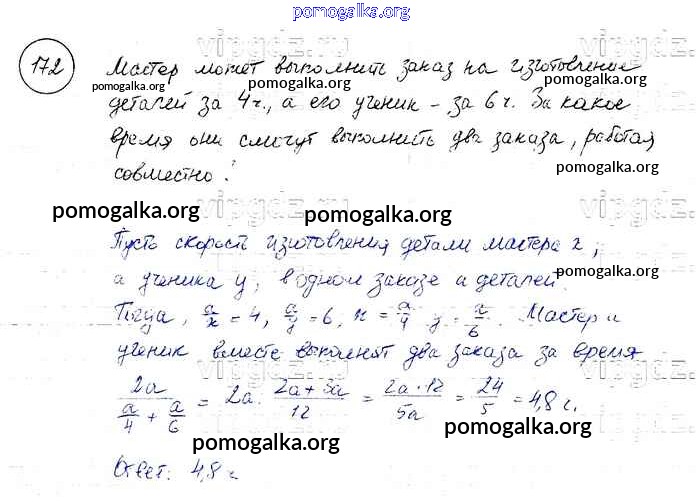 pomogalka.org
172
Мастер может выполнить заказ на изготовление
деталей за 4 ч., а его ученик – за 6 ч. За какое
время они смогут выполнить два заказа, работая
совместно?
pomogalka.org
pomogalka.org
pomogalka.org
pomogalka.org
vipgdz.ru
Пусть скорость изготовления детали мастера x,
а ученика y, в одном заказе a деталей.
pomogalka.org
Тогда, a/x = 4, a/y = 6, x = a/4 y = a/6. Мастер и
ученик вместе выполнят два заказа за время
2a / (a/4 + a/6) = 2a · (2a + 3a)/12 = (2a · 12)/5a = 24/5 = 4,8 ч.
pomogalka.org
pomogalka.org
Ответ: 4,8 ч